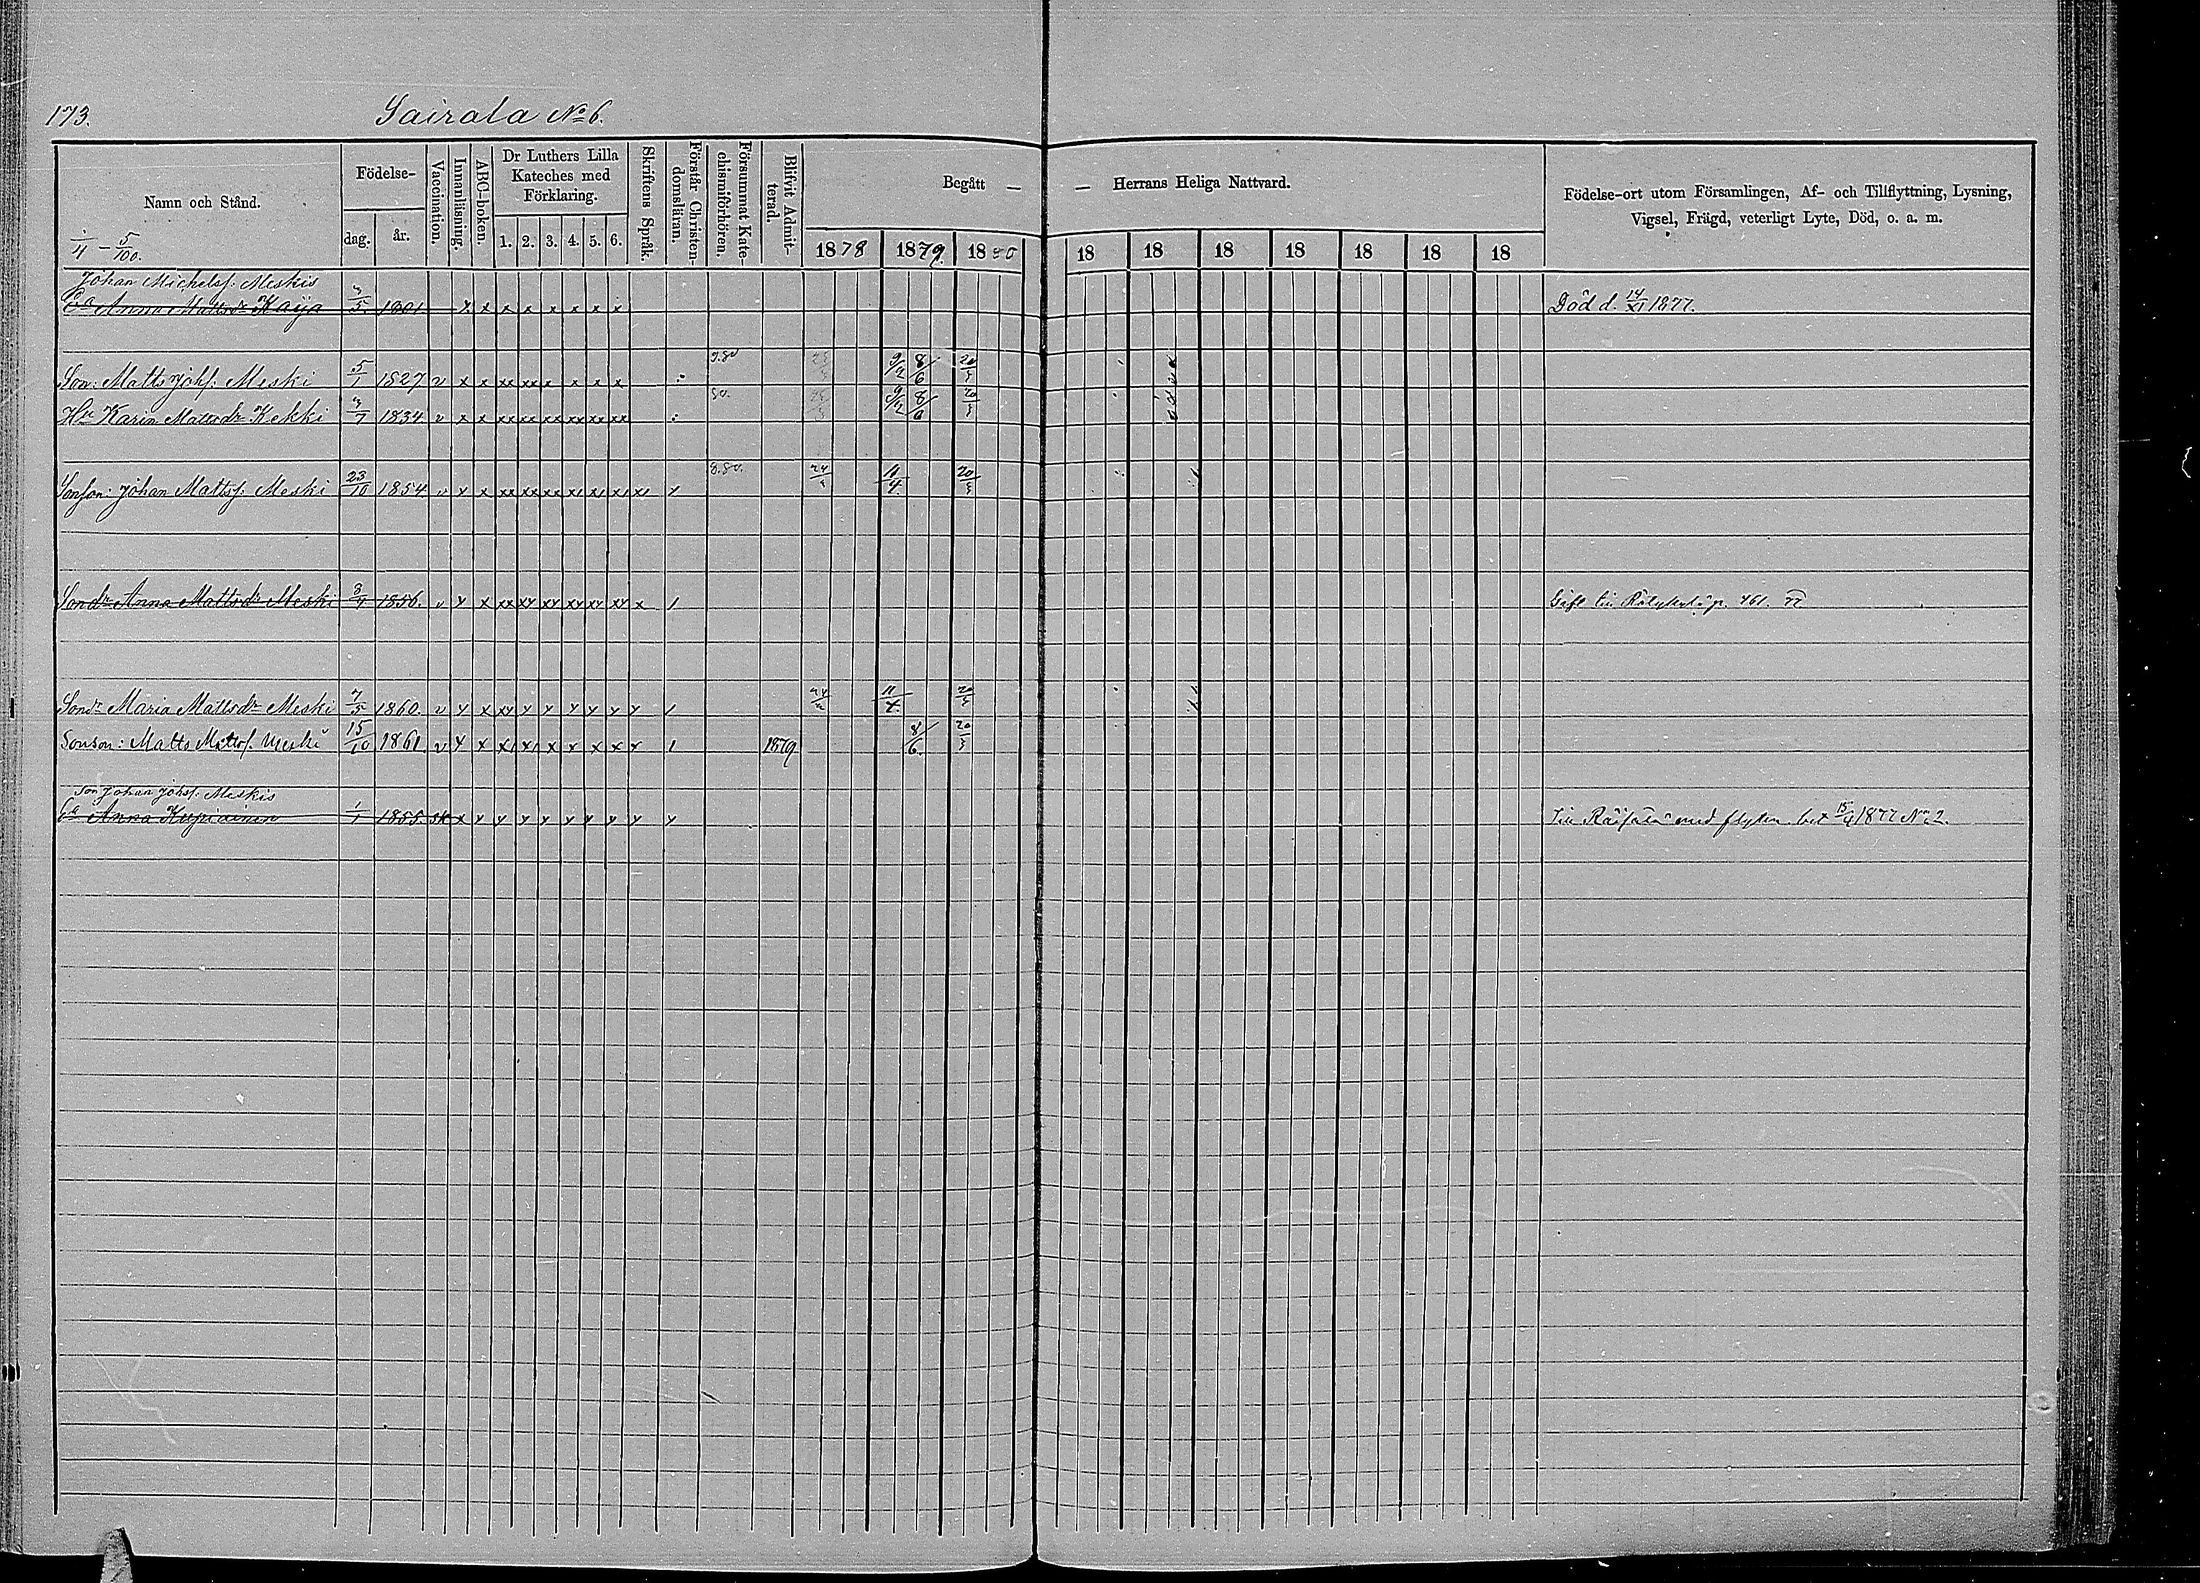 173. Sairala No 6.
Namn och Stånd. Födelse- dag. år. Vaccination. Innanläsning. ABC-boken. Dr Luthers Lilla Kateches med Förklaring. 1. 2. 3. 4. 5. 6. Skriftens Språk. Förstår Christendomsläran. Försummat Katechismiförhören. Blifvit Admitterad. Begått — — Herrans Heliga Nattvard. Födelse-ort utom Församlingen, Af- och Tillflyttning, Lysning,
Vigsel, Frägd, veterligt Lyte, Död, o. a. m.
5/100. 1878 1879. 1880 18 18 18 18 18 18 18
Johan Michelsf. Meskis
Ea Anna Mattsdr Kaija 1801 x x x x x x x x Död d. 14/XI 1877.
Son: Matts Johsf. Meski 5/1 1827 v x x xx xx x x x x 9/2 8/6 20/3
Hu Karin Mattsdr Kekki 3/7 1834 v x x xx xx xx xx xx xx 9/2 8/6 20/3
Sonson: Johan Mattsf. Meski 23/10 1854 v x x xx xx xx 8.80. 11/4. 20/3
Sondr Anna Mattsdr Meski 3/4 1856. v x x xx Gift till p. 461.
Sondr Maria Mattsdr Meski 7/5 1860. v x x 11/4. 20/3
Sonson: Matts Mattsf. Meski 15/10 1861 v x x 1879 8/6. 20/3
Son Johan Johsf. Meskis
Ea Anna Kupiainen 1/1 1855. sk x x Till Räisälä med flyttn. bet 15/4 1877 No 2.